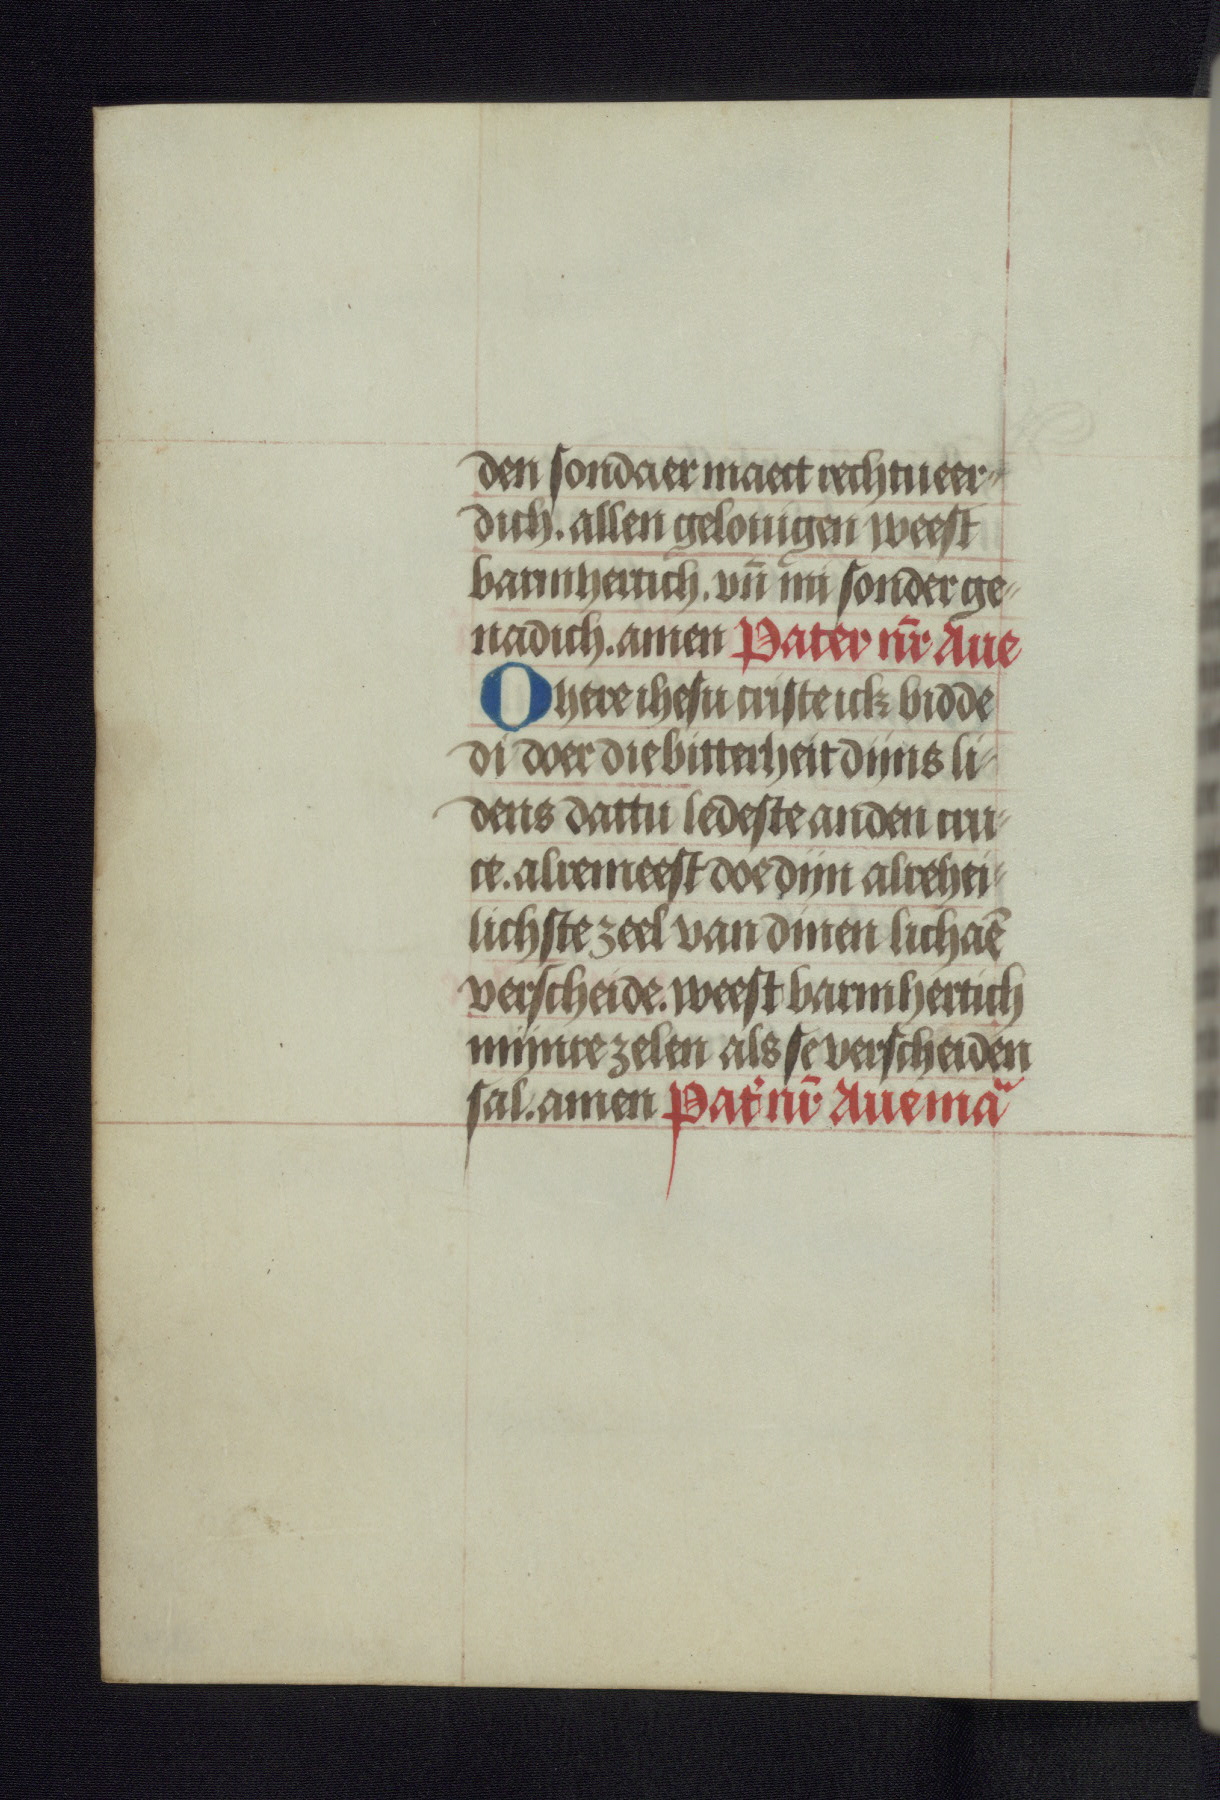 den sondaer maect rechtueer-
dich. allen gelouigen weest
barmhertich. vn̄ mi sonder ge-
nadich. amen Pater nr̄ Aue
O here ihesu criste ick bidde
di doer die bitterheit dijns li-
dens dattu ledeste anden cru-
ce. alremeest doe dijn alrehei-
lichste zeel van dinen lichaē
verscheide. weest barmhertich
mijnre zelen als se verscheiden
sal. amen Pat' nr̄ Aue ma